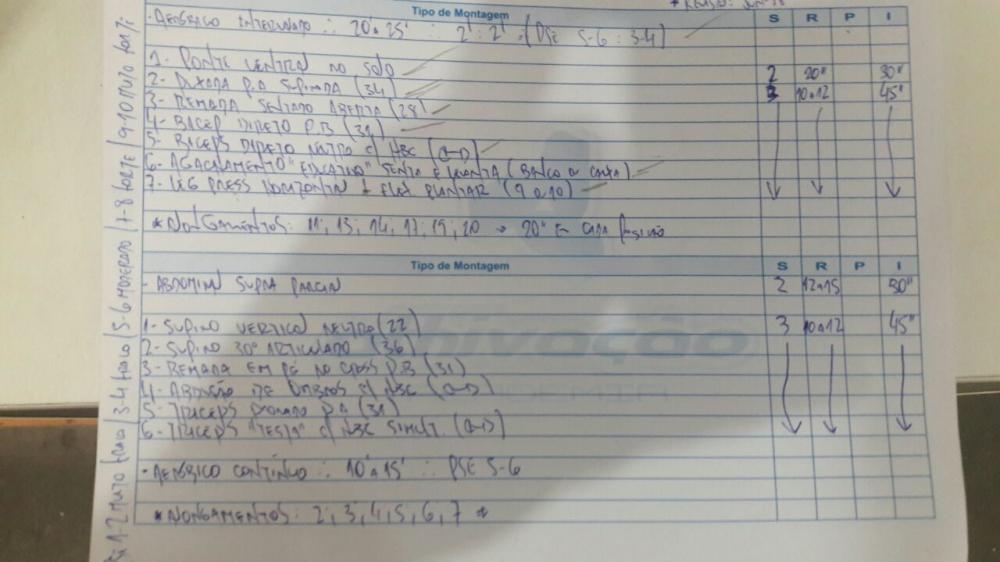 Tipo de Montagem S R P I
- AERÓBICO INTERVALADO ∴ 20'a 25' ∴ 2' : 2' (PSE 5-6 : 3-4)
1- PONTE VENTRAL NO SOLO 2 20" 30"
2- PUXADA P.A SUPINADA (34) 3 10a12 45"
3- REMADA SENTADO ABERTA (28)
4- BÍCEP DIRETO P.B (31)
5- BÍCEPS DIRETO NEUTRO c/ HBC
6- AGACHAMENTO "EDUCATIVO" SENTA E LEVANTA (BANCO
7- LEG PRESS HORIZONTAL + FLEX PLANTAR (9 a 10)
* ALONGAMENTOS: 11; 13; 14; 17; 19; 20 → 20" EM CADA POSIÇÃO
Tipo de Montagem S R P I
- ABDOMINAL SUPRA PARCIAL 2 12a15 30"
1- SUPINO VERTICAL NEUTRO (22) 3 10a12 45"
2- SUPINO 30° ARTICULADO (36)
3- REMADA EM PÉ NO CROSS P.B (31)
4- ABDUÇÃO DE OMBROS c/ HBC
5- TRÍCEPS PRONADO P.A (31)
6- TRÍCEPS "TESTA" c/ HBC SIMULT.
- AERÓBICO CONTÍNUO ∴ 10'a 15' ∴ PSE 5-6
* ALONGAMENTOS: 2; 3; 4; 5; 6; 7 *
1-2 MUITO FRACO / 3-4 FRACO / 5-6 MODERADO / 7-8 FORTE / 9-10 MUITO FORTE